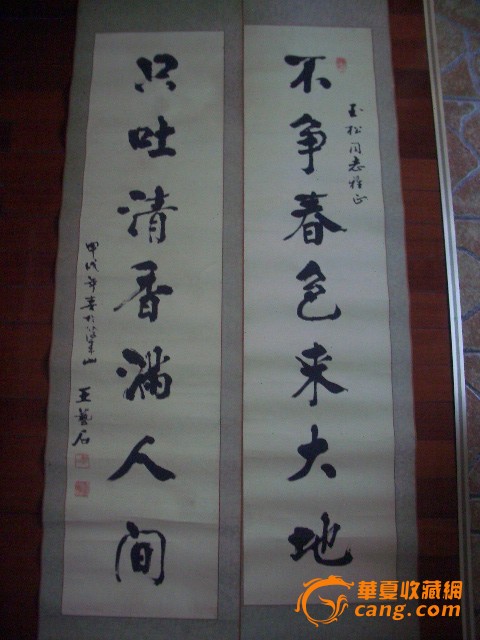 不争春色来大地
松同志雅正
只吐清香满人间
甲戌年春於山
藝石
華夏收藏網
cang.com